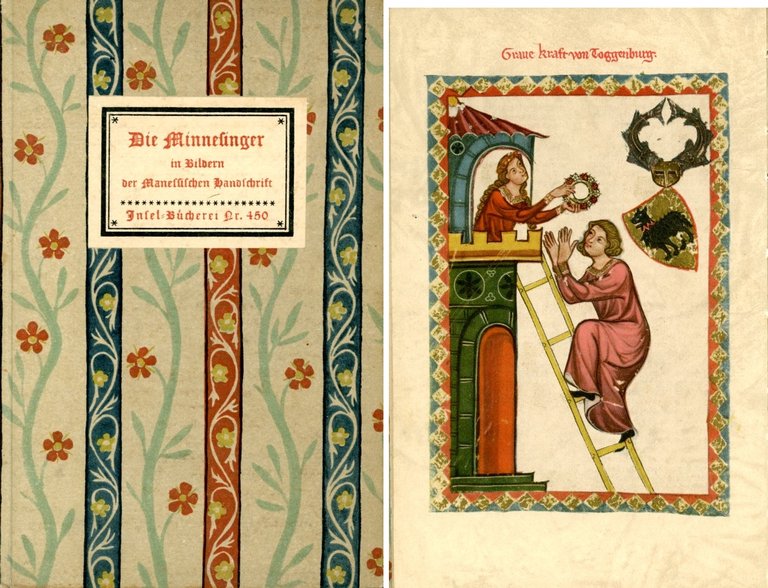 Die Minnesinger
in Bildern
der Manessischen Handschrift
Insel-Bücherei Nr. 450
Graue kraft von Toggenburg.